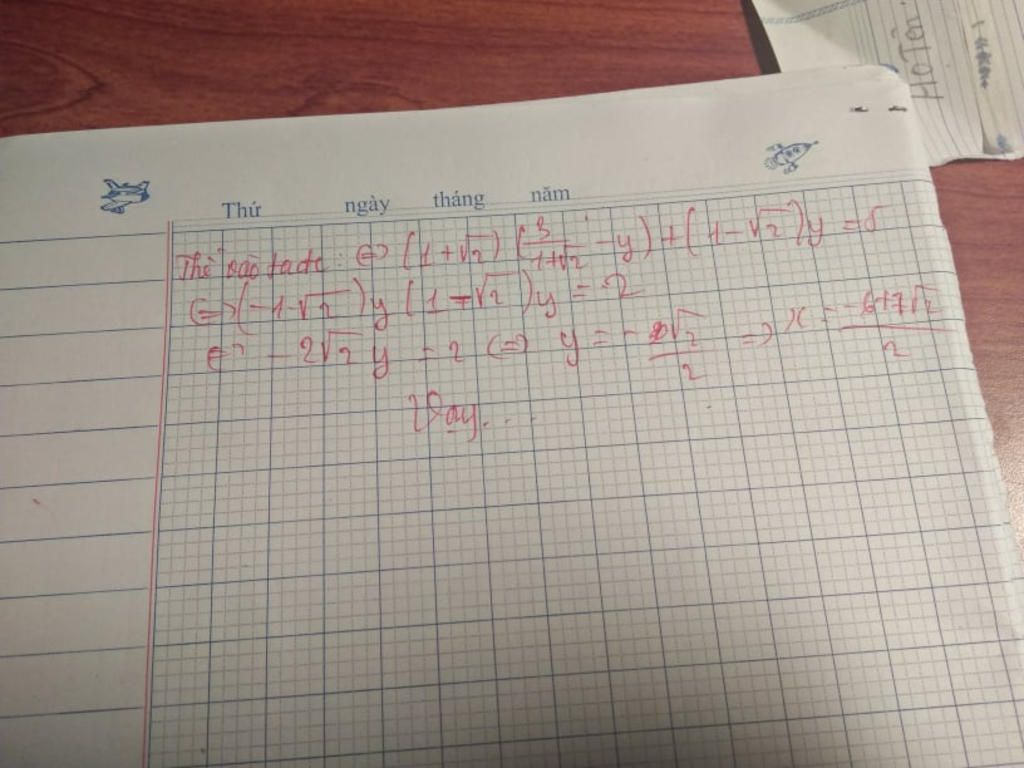 HỌ TÊN
Thứ ngày tháng năm
Thế vào ta dc: ⇔ (1+√2) (3/(1+√2) - y) + (1-√2)y = 5
⇔ (-1-√2)y (1-√2)y = 2
⇔ -2√2 y = 2 ⇔ y = -√2/2 ⇒ x = (-6+7√2)/2
Vậy...